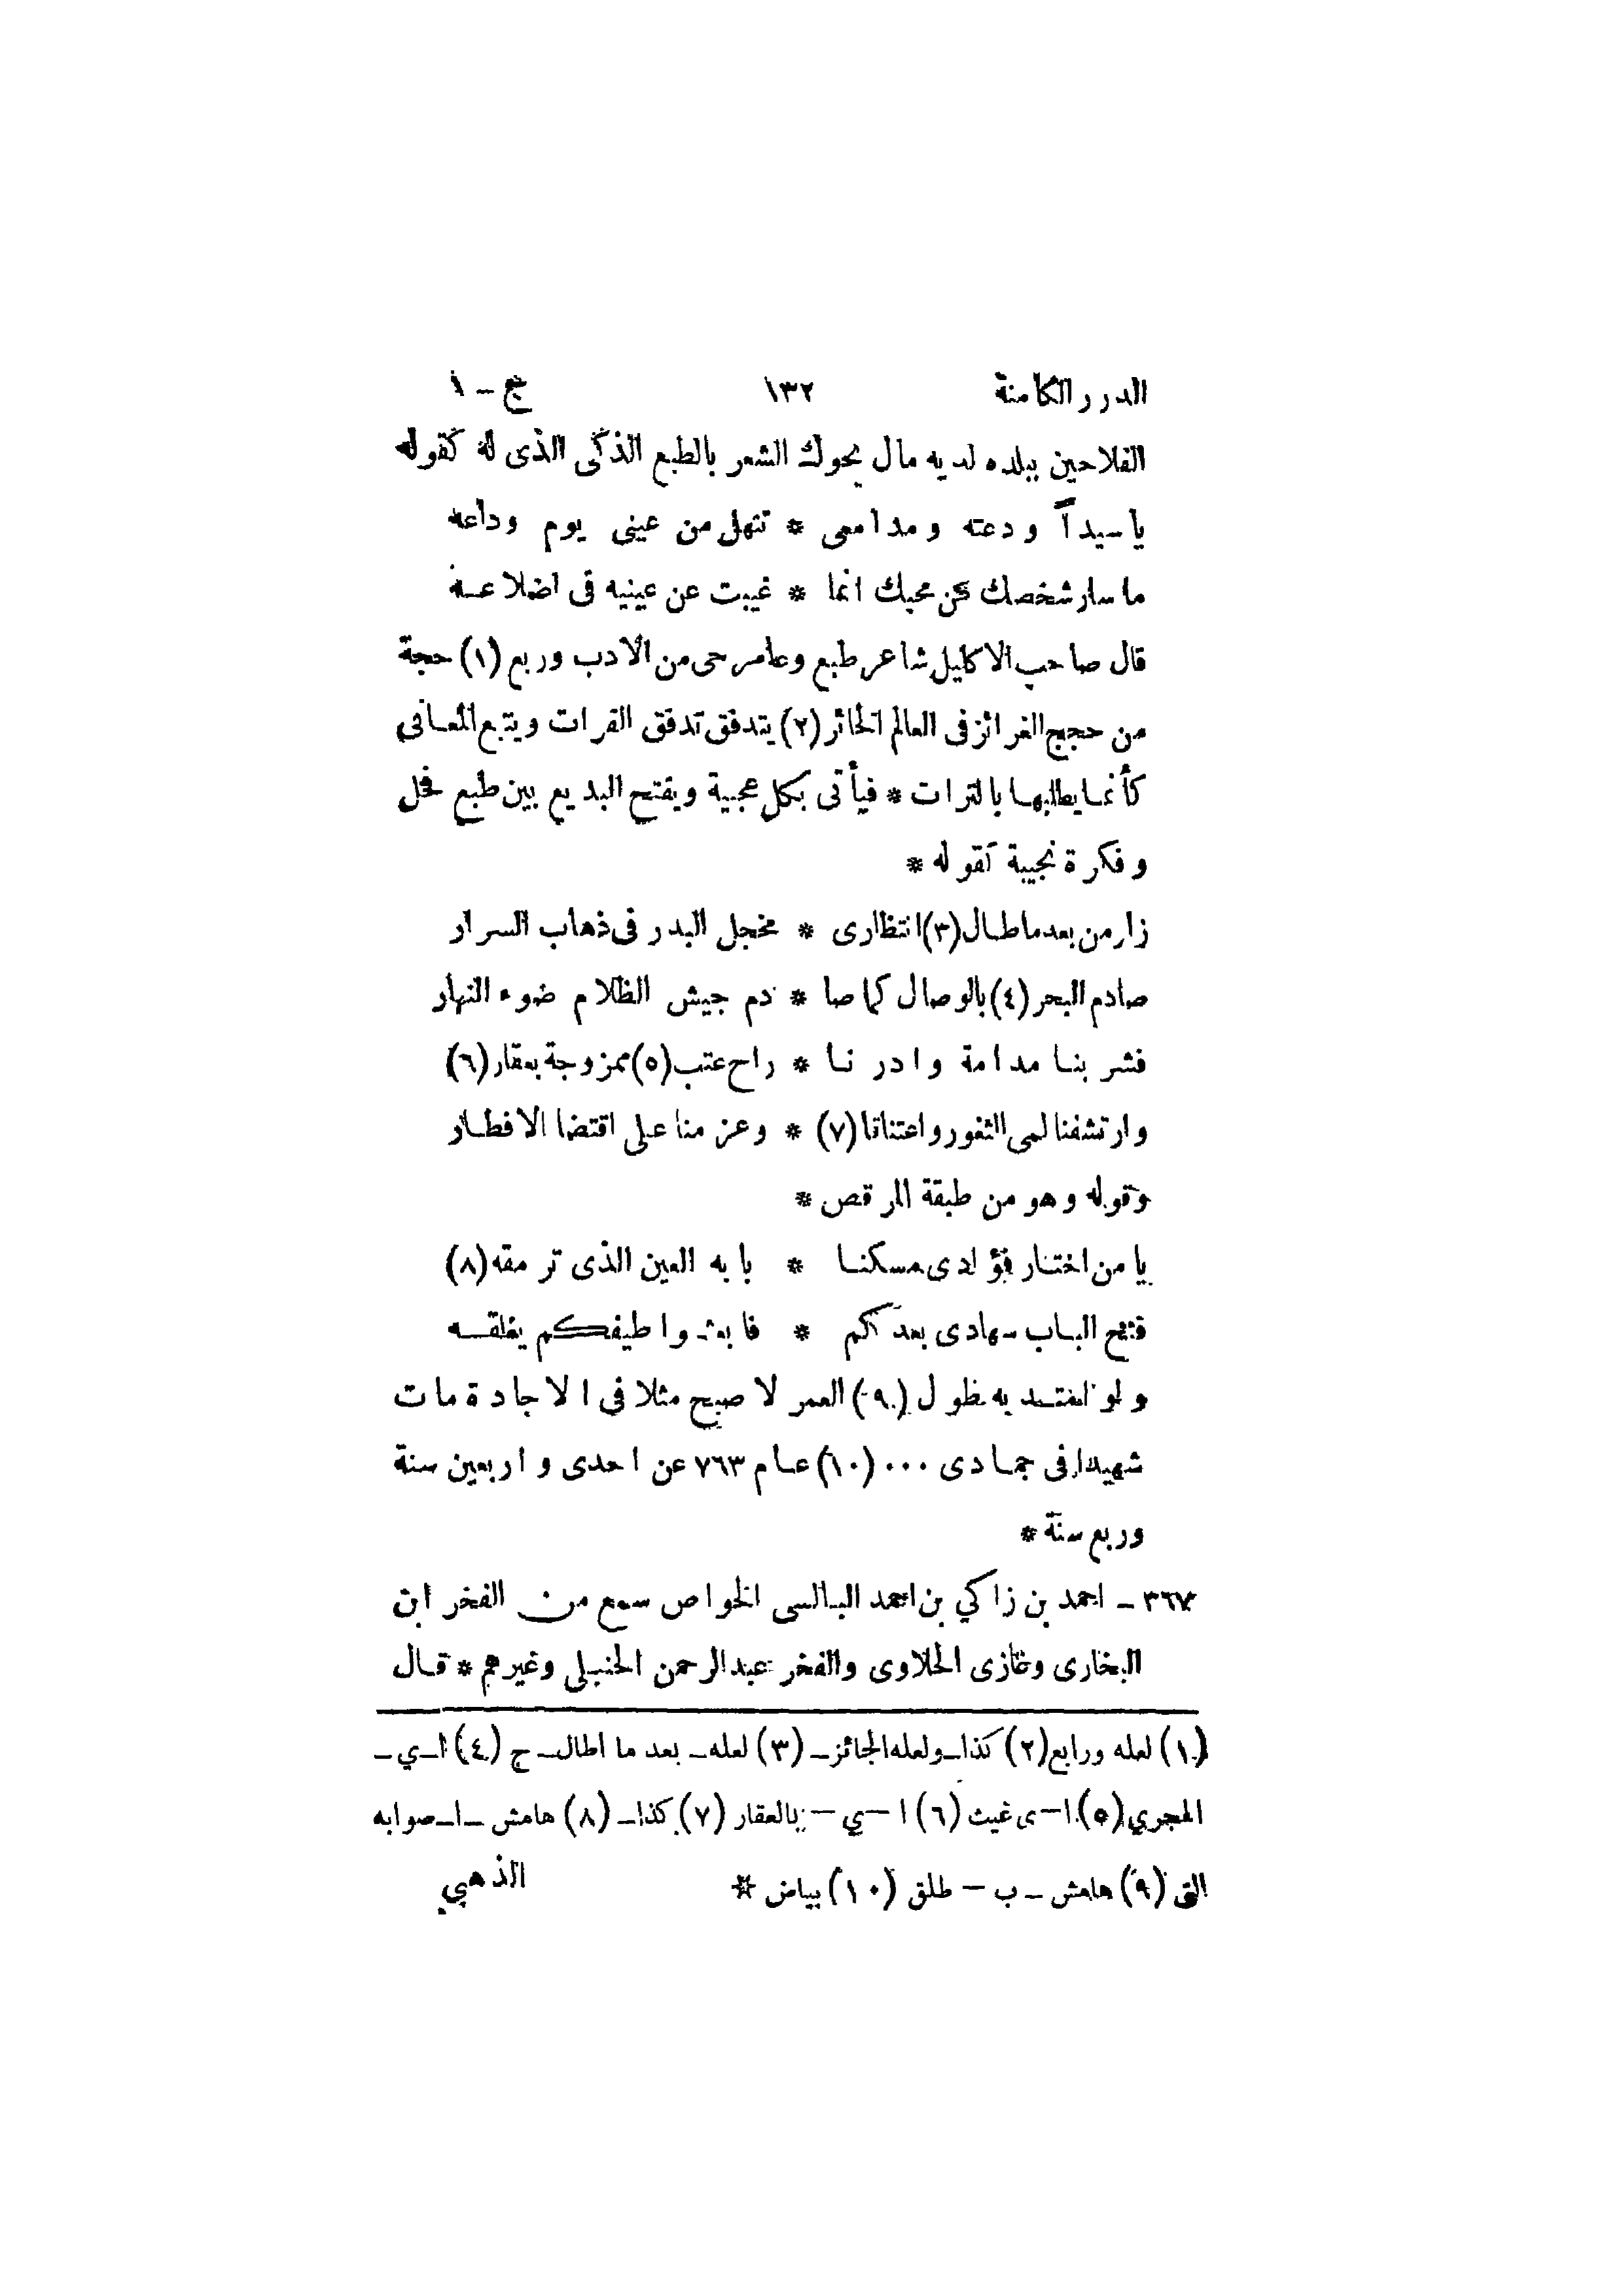 الدرر الكامنة ١٣٢ ج - ١
الفلاحين ببلده لديه مال يحوك الشعر بالطبع الذكى الذى له كقوله
يا سيداً ودعته ومدامعى * تنهل من عينى يوم وداعه
ما سار شخصك عن محبك انما * غيبت عن عينيه فى اضلاعه
قال صاحب الاكليل شاعر طبع وعامر حى من الادب وربع (١) حجة
من حجج الغرائز فى العالم الحائر (٢) يتدفق تدفق الفرات ويتبع المعانى
كأنما يطلبها بالترات * فيأتى بكل عجيبة ويفتح البديع بين طبع فحل
وفكرة نجيبة كقوله *
زار من بعد ما طال (٣) انتظارى * مخجل البدر فى ذهاب السرار
صادم البحر (٤) بالوصال كما صا * دم جيش الظلام ضوء النهار
فشربنا مدامة وادرنا * راح عتب (٥) ممزوجة بعقار (٦)
وارتشفنا لمى الثغور واعتناقا (٧) * وعزمنا على اقتضا الافطار
وقوله وهو من طبقة المرقص *
يا من اختار فؤادى مسكنا * بابه العين الذى ترمقه (٨)
فتح الباب سهادى بعدكم * فابعثوا طيفكم يغلقه
ولو انفتد به طول (٩) العمر لا صبح مثلا فى الاجادة مات
شهيدا فى جمادى ٠٠٠ (١٠) عام ٧٦٣ عن احدى واربعين سنة
وربع سنة *
٣٦٧ - احمد بن زاكي بن احمد البالسى الخواص سمع من الفخر ابن
البخارى وغازى الحلاوى والفخر عبد الرحمن الحنبلى وغيرهم * قال
(١) لعله ورابع (٢) كذا - ولعله الجائز - (٣) لعله - بعد ما اطال - ح (٤) ا - ي -
المجري (٥) ا - ى غيث (٦) ا - ي - بالعقار (٧) كذا - (٨) هامش - ا - صوابه
التى (٩) هامش - ب - طلق (١٠) بياض * الذهبي